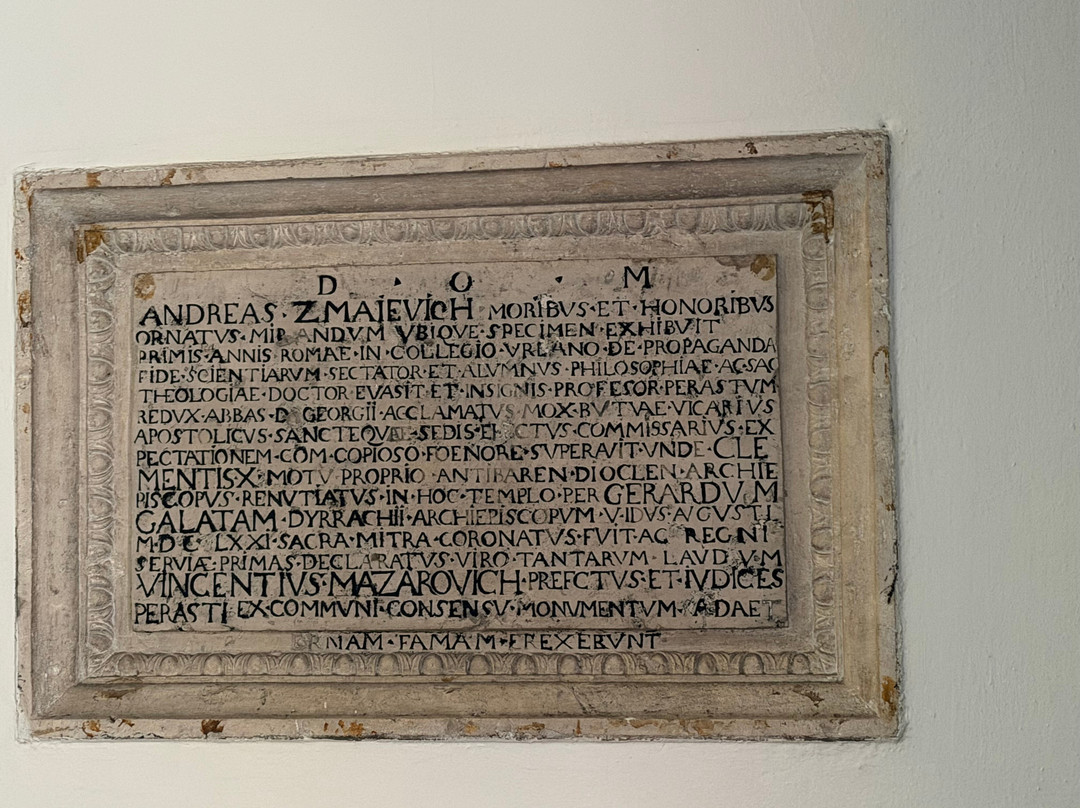 D · O · M
ANDREAS · ZMAJEVICH MORIBVS · ET · HONORIBVS
ORNATVS · MIRANDVM VBIQVE · SPECIMEN · EXHIBVIT
PRIMIS · ANNIS ROMAE · IN · COLLEGIO · VRBANO · DE · PROPAGANDA
FIDE · SCIENTIARVM · SECTATOR · ET · ALVMNVS · PHILOSOPHIAE · AC · SAC
THEOLOGIAE · DOCTOR EVASIT · ET · INSIGNIS · PROFESOR · PERASTVM
REDVX · ABBAS · D · GEORGII · ACCLAMATVS · MOX · BVTVAE · VICARIVS
APOSTOLICVS · SANCTEQVAE · SEDIS · ELECTVS · COMMISSARIVS · EX
PECTATIONEM · COM · COPIOSO · FOENORE · SVPERAVIT · VNDE · CLE
MENTIS · X · MOTV PROPRIO · ANTIBAREN · DIOCLEN · ARCHIE
PISCOPVS · RENVTIATVS · IN · HOC · TEMPLO · PER GERARDVM
GALATAM · DYRRACHII · ARCHIEPISCOPVM · V · IDVS · AVGVSTI
M · DC LXXI · SACRA · MITRA · CORONATVS · FVIT · AC REGNI
SERVIÆ · PRIMAS · DECLARATVS · VIRO · TANTARVM · LAVDVM
VINCENTIVS · MAZAROVICH · PREFCTVS · ET · IVDICES
PERASTI EX · COMMVNI · CONSENSV · MONVMENTVM · ADAET
ERNAM · FAMAM · EREXERVNT